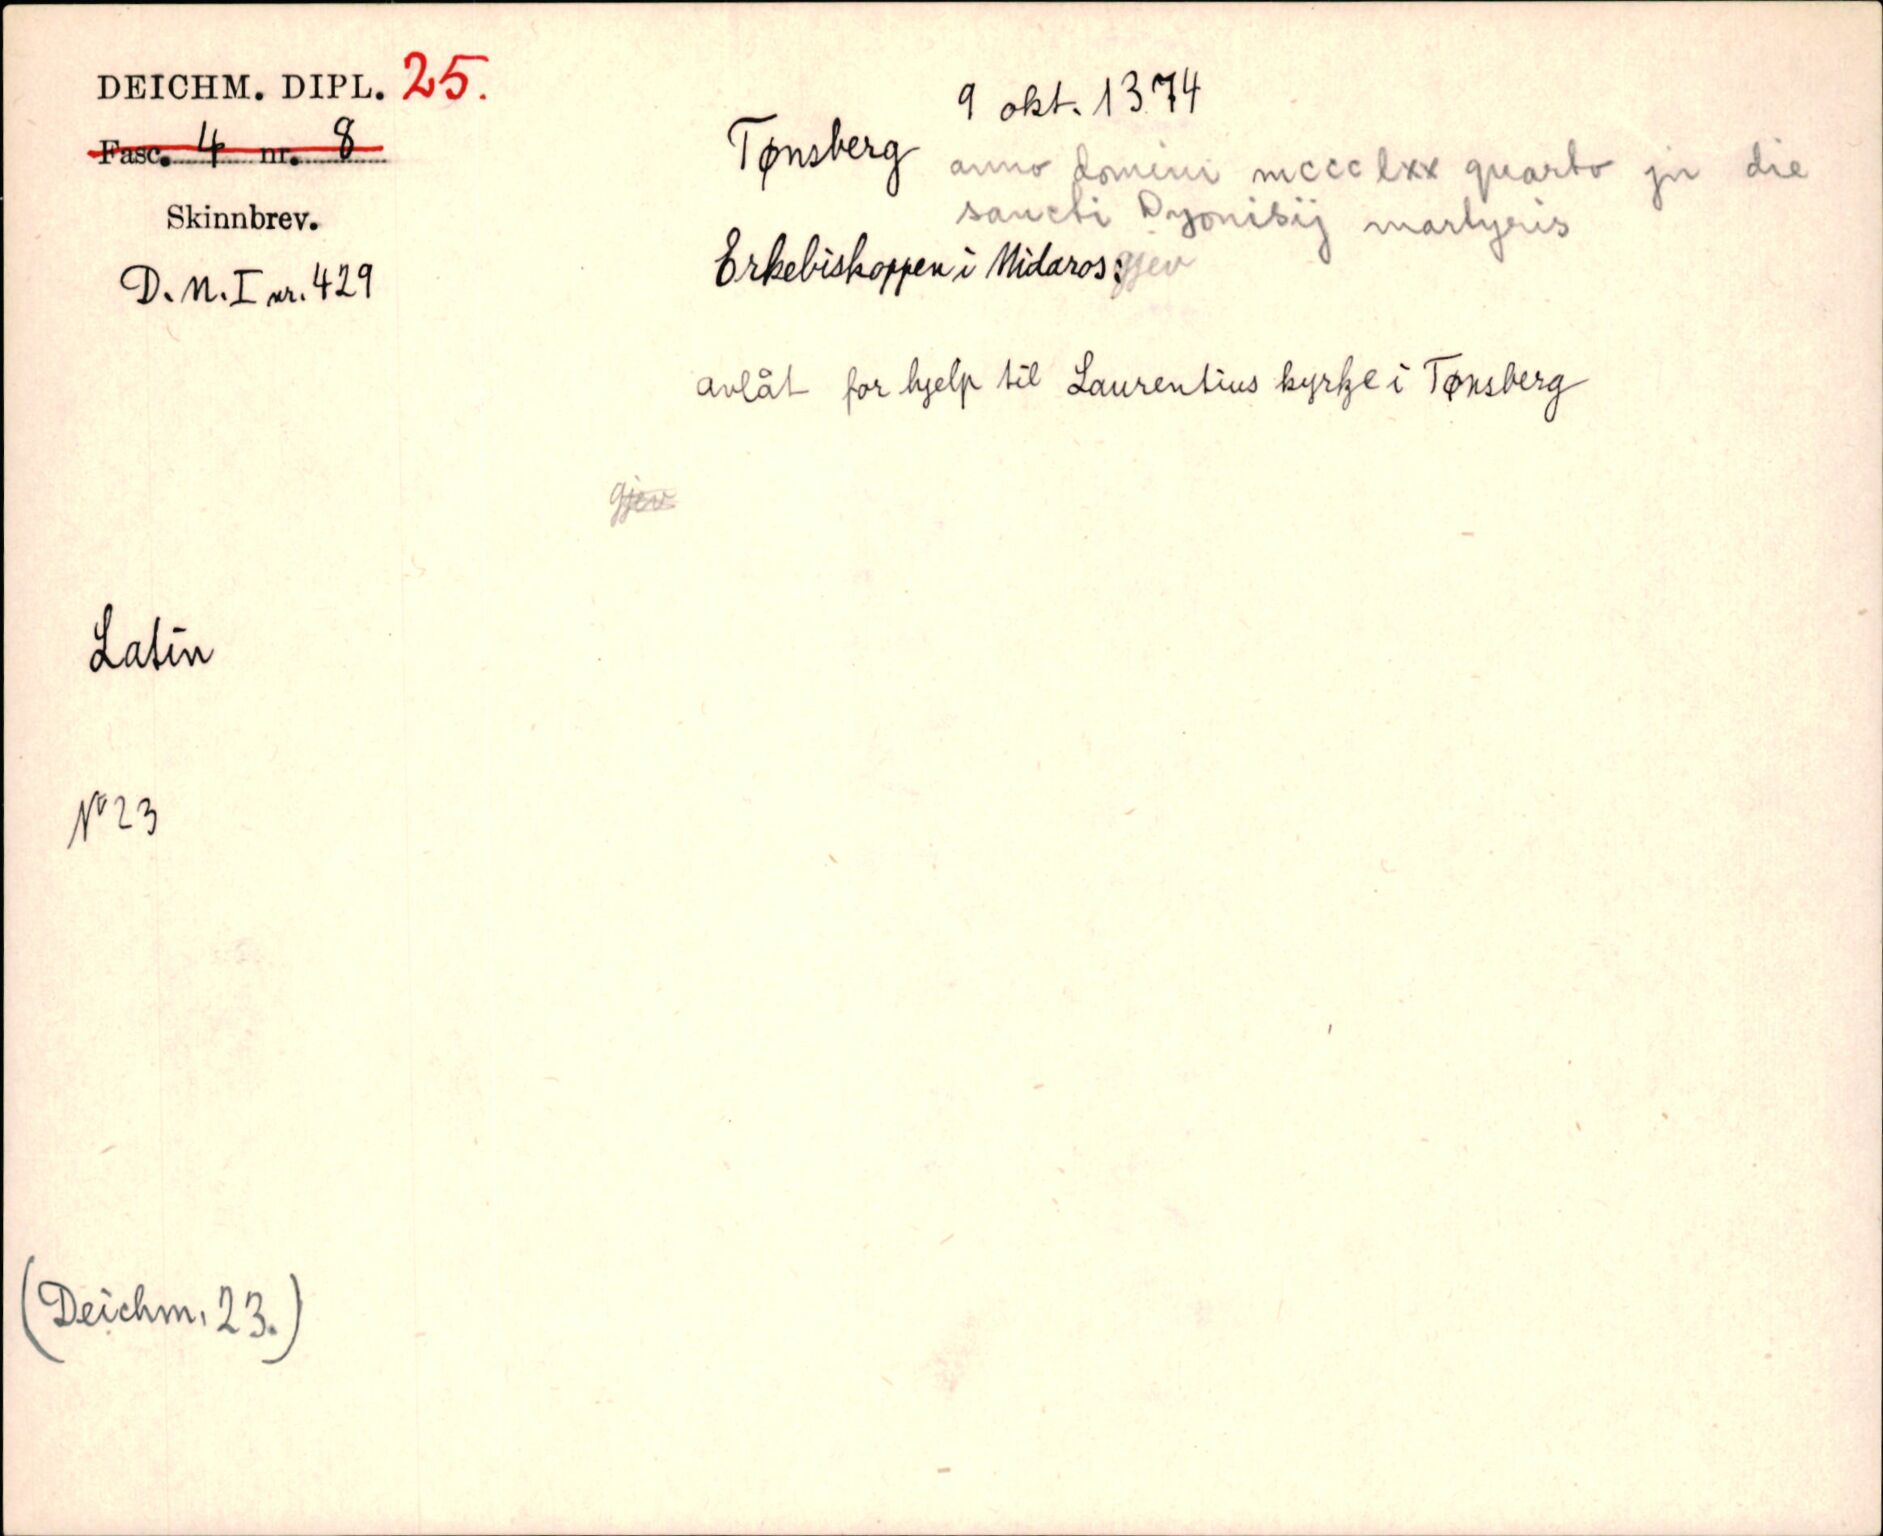 DEICHM. DIPL. 25.
Fasc. 4 nr. 8
Skinnbrev.
D. N. I nr. 429
9 okt. 1374
Tønsberg
anno domini mccclxx quarto jn die
sancti Dyonisij martyris
Erkebiskoppen i Nidaros: gjev
avlåt for hjelp til Laurentius kyrkje i Tønsberg
gjev
Latin
No 23
(Deichm. 23.)